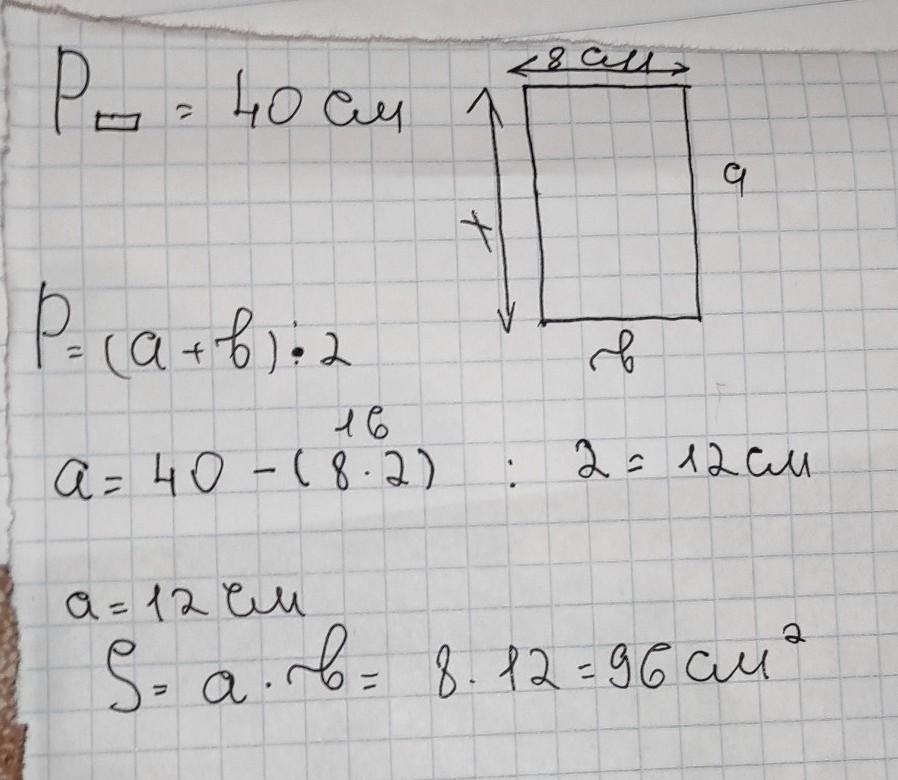 P▭ = 40 см
8 см
x
a
в
P = (a + в) · 2
16
a = 40 - (8 · 2) : 2 = 12 см
a = 12 см
S = a · в = 8 · 12 = 96 см²